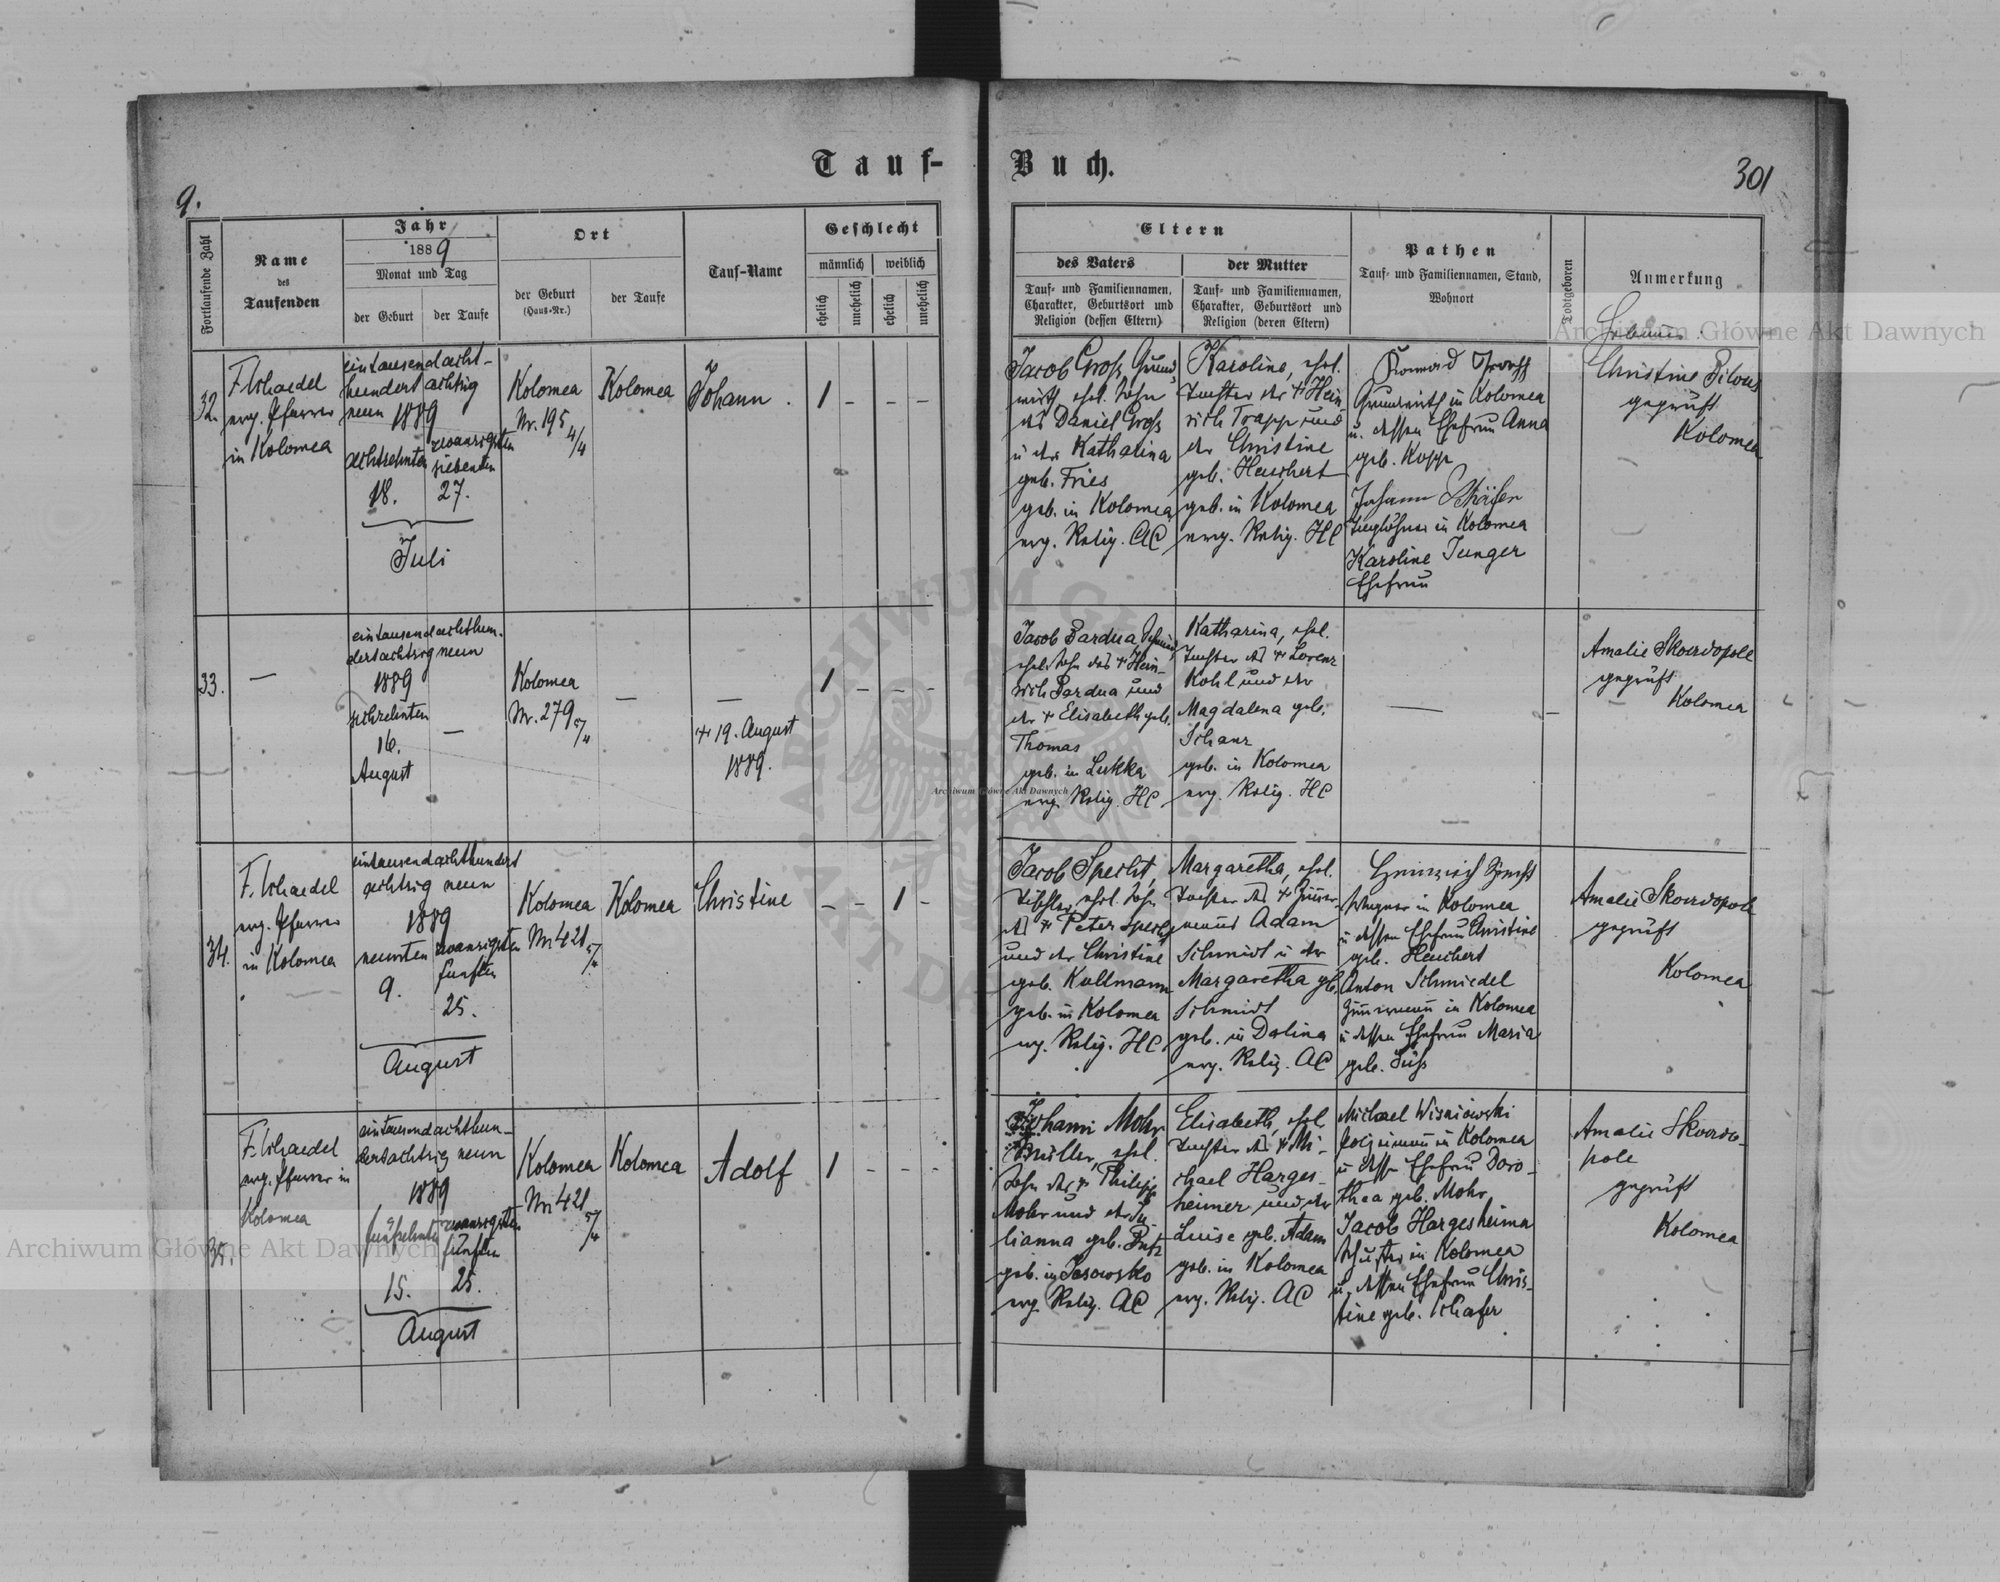 Tauf-
Buch.
9.
301
Fortlaufende Zahl
Name
des
Taufenden
Jahr
1889
Monat und Tag
der Geburt
der Taufe
Ort
der Geburt
(Haus-Nr.)
der Taufe
Tauf-Name
Geschlecht
männlich
weiblich
ehelich
unehelich
ehelich
unehelich
Eltern
des Vaters
Tauf- und Familiennamen,
Charakter, Geburtsort und
Religion (dessen Eltern)
der Mutter
Tauf- und Familiennamen,
Charakter, Geburtsort und
Religion (deren Eltern)
Pathen
Tauf- und Familiennamen, Stand,
Wohnort
Todtgeboren
Anmerkung
32.
F. Schaedel
evg. Pfarrer
in Kolomea
eintausendacht-
hundert achtzig
neun 1889
achtzehnten
18.
zwanzigsten
siebenten
27.
Juli
Kolomea
Nr. 195
4/4
Kolomea
Johann .
1 - - -
Jacob Groß, Grund
wirth, ehel. Sohn
des Daniel Groß
u der Katharina
geb. Fries
geb. in Kolomea
evg. Relig. AC
Karoline, ehel.
Tochter des + Hein
rich Trapp und
der Christine
geb. Heuchert
geb. in Kolomea
evg. Relig. HC
Konrad
Grundwirth in Kolomea
u. dessen Ehefrau Anna
geb. Kopp
Johann Schäfer
Taglöhner in Kolomea
Karoline Junger
Ehefrau
Hebamme
Christine Bilous
geprüft
Kolomea
33.
—
eintausendachthun-
dertachtzig neun
1889
sechzehnten
16.
August
—
Kolomea
Nr. 279
5/4
—
—
+ 19. August
1889.
1 - - -
Jacob Bardua, Schmied
ehel. Sohn des + Hein-
rich Bardua und
der + Elisabeth geb.
Thomas
geb. in
evg. Relig. HC
Katharina, ehel.
Tochter des + Lorenz
Kohl und der
Magdalena geb.
Schanz
geb. in Kolomea
evg. Relig. HC
—
—
Amalie Skowdopole
geprüft
Kolomea
34.
F. Schaedel
evg. Pfarrer
in Kolomea
eintausendachthundert
achtzig neun
1889
neunten
9.
zwanzigsten
fünften
25.
August
Kolomea
Nr 421
5/4
Kolomea
Christine
- - 1 -
Jacob Specht,
Tischler, ehel. Sohn
des + Peter Specht
und der Christine
geb. Kullmann
geb. in Kolomea
evg. Relig. HC.
Margaretha, ehel.
Tochter des + Zimmer-
manns Adam
Schmidt u der
Margaretha geb.
Schmidt
geb. in Dolina
evg. Relig. AC
Heinrich Specht
Wagner in Kolomea
u dessen Ehefrau Christine
geb. Heuchert
Anton Schmiedel
Zimmermann in Kolomea
u dessen Ehefrau Maria
geb. Süß
Amalie Skowdopole
geprüft
Kolomea
35.
F. Schaedel
evg. Pfarrer in
Kolomea
eintausendachthun-
dertachtzig neun
1889
fünfzehnten
15.
zwanzigsten
fünften
25.
August
Kolomea
Nr 421
5/4
Kolomea
Adolf
1 - - -
Johann Mohr
Müller, ehel.
Sohn des + Philipp
Mohr und der Ju
lianna geb.
geb. in
evg. Relig. AC
Elisabeth, ehel
Tochter des + Mi-
chael Harges-
heimer und der
Luise geb. Adam
geb. in Kolomea
evg. Relig. AC
Michael Wisniowski
Polizimann in Kolomea
u dessen Ehefrau Doro-
thea geb. Mohr
Jacob Hargesheimer
Schuster in Kolomea
u. dessen Ehefrau Chris-
tine geb. Schafer
Amalie Skowdo-
pole
geprüft
Kolomea
Archiwum Główne Akt Dawnych
Archiwum Główne Akt Dawnych
Archiwum Główne Akt Dawnych